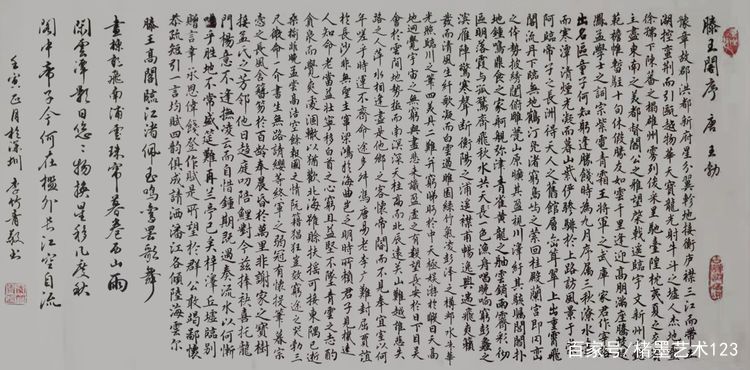 滕王閣序 唐 王勃
豫章故郡洪都新府星分翼軫地接衡廬襟三江而帶五
湖控蠻荊而引甌越物華天寶龍光射牛斗之墟人杰地靈
徐孺下陳蕃之榻雄州霧列俊采星馳臺隍枕夷夏之交賓
主盡東南之美都督閻公之雅望棨戟遙臨宇文新州之懿
範襜帷暫駐十旬休假勝友如雲千里逢迎高朋滿座騰蛟起
鳳孟學士之詞宗紫電青霜王將軍之武庫家君作宰路
出名區童子何知躬逢勝餞時維九月序屬三秋潦水盡
而寒潭清煙光凝而暮山紫儼驂騑於上路訪風景於崇
阿臨帝子之長洲得天人之舊館層巒聳翠上出重霄飛
閣流丹下臨無地鶴汀鳧渚窮島嶼之縈回桂殿蘭宮即岡巒
之體勢披繡闥俯雕甍山原曠其盈視川澤紆其駭矚閭閻撲
地鐘鳴鼎食之家舸艦彌津青雀黃龍之舳雲銷雨霽彩徹
區明落霞與孤鶩齊飛秋水共長天一色漁舟唱晚響窮彭蠡之
濱雁陣驚寒聲斷衡陽之浦遙襟甫暢逸興遄飛爽籟
發而清風生纖歌凝而白雲遏睢園綠竹氣凌彭澤之樽鄴水朱華
光照臨川之筆四美具二難並窮睇眄於中天極娛遊於暇日天高
地迥覺宇宙之無窮興盡悲來識盈虛之有數望長安於日下目吳
會於雲間地勢極而南溟深天柱高而北辰遠關山難越誰悲失
路之人萍水相逢盡是他鄉之客懷帝閽而不見奉宣室以何
年嗟乎時運不齊命途多舛馮唐易老李廣難封屈賈誼
於長沙非無聖主竄梁鴻於海曲豈乏明時所賴君子見機達
人知命老當益壯寧移白首之心窮且益堅不墜青雲之志酌
貪泉而覺爽處涸轍以猶歡北海雖賒扶搖可接東隅已逝
桑榆非晚孟嘗高潔空餘報國之情阮籍猖狂豈效窮途之哭勃三
尺微命一介書生無路請纓等終軍之弱冠有懷投筆慕宗
愨之長風舍簪笏於百齡奉晨昏於萬里非謝家之寶樹
接孟氏之芳鄰他日趨庭叨陪鯉對今茲捧袂喜托龍
門楊意不逢撫凌雲而自惜鍾期既遇奏流水以何慚
嗚乎勝地不常盛筵難再蘭亭已矣梓澤丘墟臨別
贈言幸承恩偉餞登作賦是所望於群公敢竭鄙懷
恭疏短引一言均賦四韻俱成請灑潘江各傾陸海雲爾
滕王高閣臨江渚佩玉鳴鸞罷歌舞
畫棟朝飛南浦雲珠簾暮卷西山雨
閑雲潭影日悠悠物換星移幾度秋
閣中帝子今何在檻外長江空自流
壬寅正月於深圳 李竹青敬書
百家号/楮墨艺术123